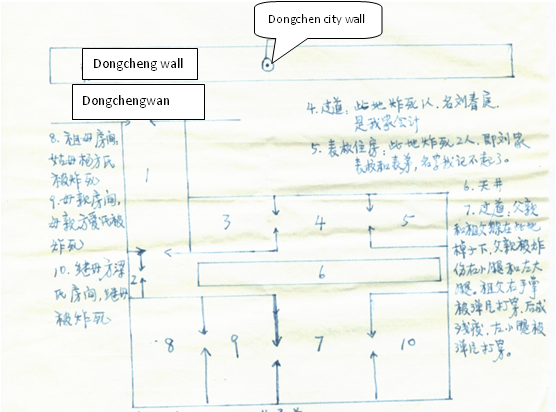 Dongchen city wall
Dongcheng wall
Dongchengwan
4. 过道：此地炸死1人，名刘春庭，
是我家会计
5. 表叔住房：此地炸死2人，即刘家
表叔和表弟，名字我记不起了。
6. 天井
7. 过道：父亲
和祖父躲在此地
桌子下，父亲被炸
伤右小腿和左大
腿，祖父右手掌
被弹片打穿，后成
残废，左小腿被
弹片打穿。
8. 祖母房间，
姑母杨方氏
被炸死
9. 母亲房间，
母亲方爱氏被
炸死
10. 继母方梁
氏房间，继母
被炸死
1
3
4
5
2
6
8
9
7
10